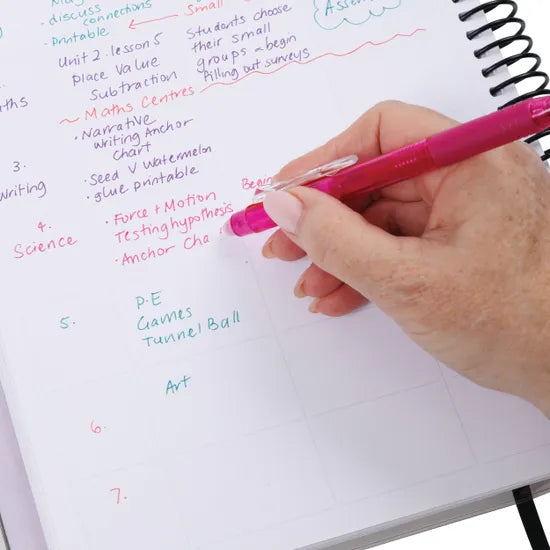 discuss
connections
· Printable
Small
Students choose
their small
groups & begin
filling out surveys
Unit 2. lesson 5
Place Value
Subtraction
~ Maths Centres
· Narrative
Writing Anchor
Chart
· Seed V Watermelon
· glue printable
3.
Writing
4.
Science
· Force + Motion
Testing hypothesis
· Anchor Cha
5.
P.E
Games
Tunnel Ball
Art
6.
7.